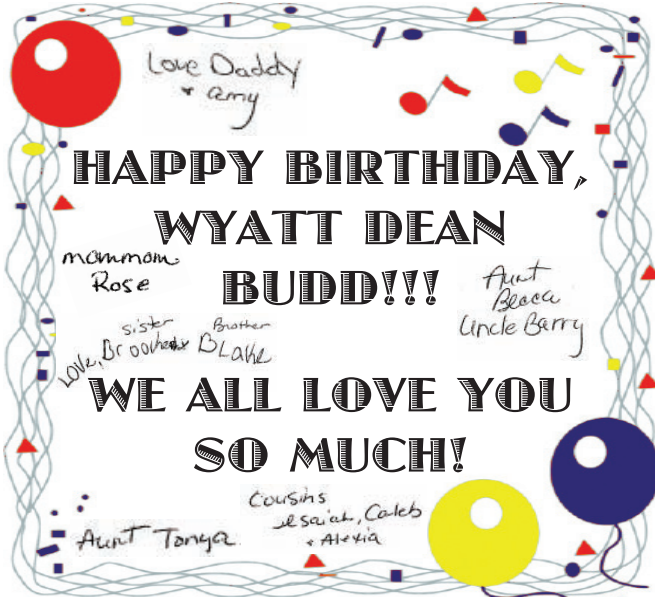 Love Daddy
+ amy
HAPPY BIRTHDAY,
WYATT DEAN
BUDD!!!
mommom
Rose
Aunt
Becca
Uncle Barry
sister
Brother
Love,
BLake
WE ALL LOVE YOU
SO MUCH!
Cousins
Isaiah, Caleb
+ Alexia
Aunt Tonya